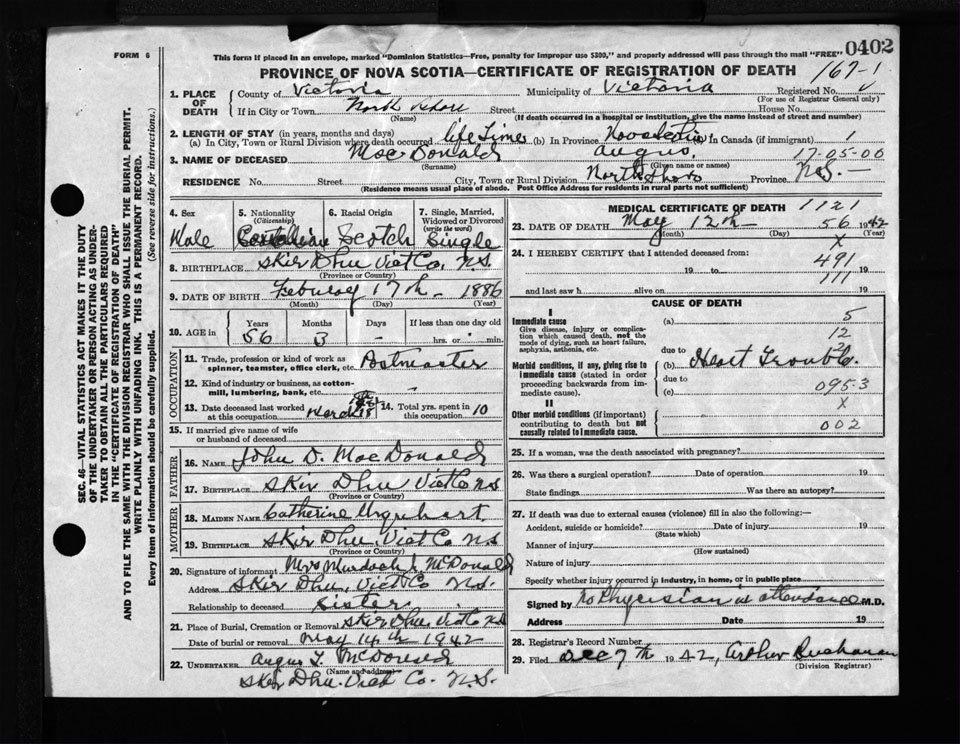 0402
FORM 6
This form if placed in an envelope, marked "Dominion Statistics—Free, penalty for improper use $300," and properly addressed will pass through the mail "FREE"
PROVINCE OF NOVA SCOTIA—CERTIFICATE OF REGISTRATION OF DEATH
167-1
1. PLACE OF DEATH
County of Victoria Municipality of Victoria Registered No.
(For use of Registrar General only)
If in City or Town North Shore Street House No.
(Name) (If death occurred in a hospital or institution, give the name instead of street and number)
2. LENGTH OF STAY (in years, months and days)
(a) In City, Town or Rural Division where death occurred life Time (b) In Province Nova Scotia In Canada (if immigrant)
3. NAME OF DECEASED MacDonald Angus 17-05-00
(Surname) (Given name or names)
RESIDENCE No. Street City, Town or Rural Division North Shore Province N.S. —
(Residence means usual place of abode. Post Office Address for residents in rural parts not sufficient)
4. Sex Male
5. Nationality (Citizenship) Canadian
6. Racial Origin Scotch
7. Single, Married, Widowed or Divorced (write the word) Single
8. BIRTHPLACE Skir Dhu Vict Co. N.S.
(Province or Country)
9. DATE OF BIRTH Febuary 17th 1886
(Month) (Day) (Year)
10. AGE in Years 56 Months 3 Days - If less than one day old hrs. or min.
OCCUPATION
11. Trade, profession or kind of work as spinner, teamster, office clerk, etc. Postmaster
12. Kind of industry or business, as cotton-mill, lumbering, bank, etc. -
13. Date deceased last worked at this occupation March 18
14. Total yrs. spent in this occupation 10
15. If married give name of wife or husband of deceased
FATHER
16. NAME John D. MacDonald
17. BIRTHPLACE Skir Dhu Vict Co N.S
(Province or Country)
MOTHER
18. MAIDEN NAME Catherine Urquhart
19. BIRTHPLACE Skir Dhu Vict Co N.S
(Province or Country)
20. Signature of informant Mrs Murdoch J. McDonald
Address Skir Dhu, Vict Co N.S.
Relationship to deceased Sister
21. Place of Burial, Cremation or Removal Skir Dhu Vict Co N.S
Date of burial or removal May 14th 1942
22. UNDERTAKER Angus L. McDonald
(Name and address)
Skir Dhu. Vict Co. N.S.
MEDICAL CERTIFICATE OF DEATH 1121
23. DATE OF DEATH May 12th 56 1942
(Month) (Day) (Year)
X
24. I HEREBY CERTIFY that I attended deceased from:
491
19 to 19
111
and last saw h alive on 19
CAUSE OF DEATH
I
Immediate cause (a) 5
Give disease, injury or complication which caused death, not the mode of dying, such as heart failure, asphyxia, asthenia, etc.
12
due to
Morbid conditions, if any, giving rise to immediate cause (stated in order proceeding backwards from immediate cause).
(b) Heart Trouble.
due to
(c) 0953
II
X
Other morbid conditions (if important) contributing to death but not causally related to immediate cause.
002
25. If a woman, was the death associated with pregnancy?
26. Was there a surgical operation? Date of operation 19
State findings Was there an autopsy?
27. If death was due to external causes (violence) fill in also the following:—
Accident, suicide or homicide? Date of injury 19
(State which)
Manner of injury
(How sustained)
Nature of injury
Specify whether injury occurred in industry, in home, or in public place
Signed by no Physician in attendance M.D.
Address Date 19
28. Registrar's Record Number
29. Filed Dec 7th 1942, Arthur Buchanan
(Division Registrar)
SEC. 46—VITAL STATISTICS ACT MAKES IT THE DUTY
OF THE UNDERTAKER OR PERSON ACTING AS UNDER-
TAKER TO OBTAIN ALL THE PARTICULARS REQUIRED
IN THE "CERTIFICATE OF REGISTRATION OF DEATH"
AND TO FILE THE SAME WITH THE DIVISION REGISTRAR WHO SHALL ISSUE THE BURIAL PERMIT.
WRITE PLAINLY WITH UNFADING INK. THIS IS A PERMANENT RECORD.
Every item of information should be carefully supplied. (See reverse side for instructions).